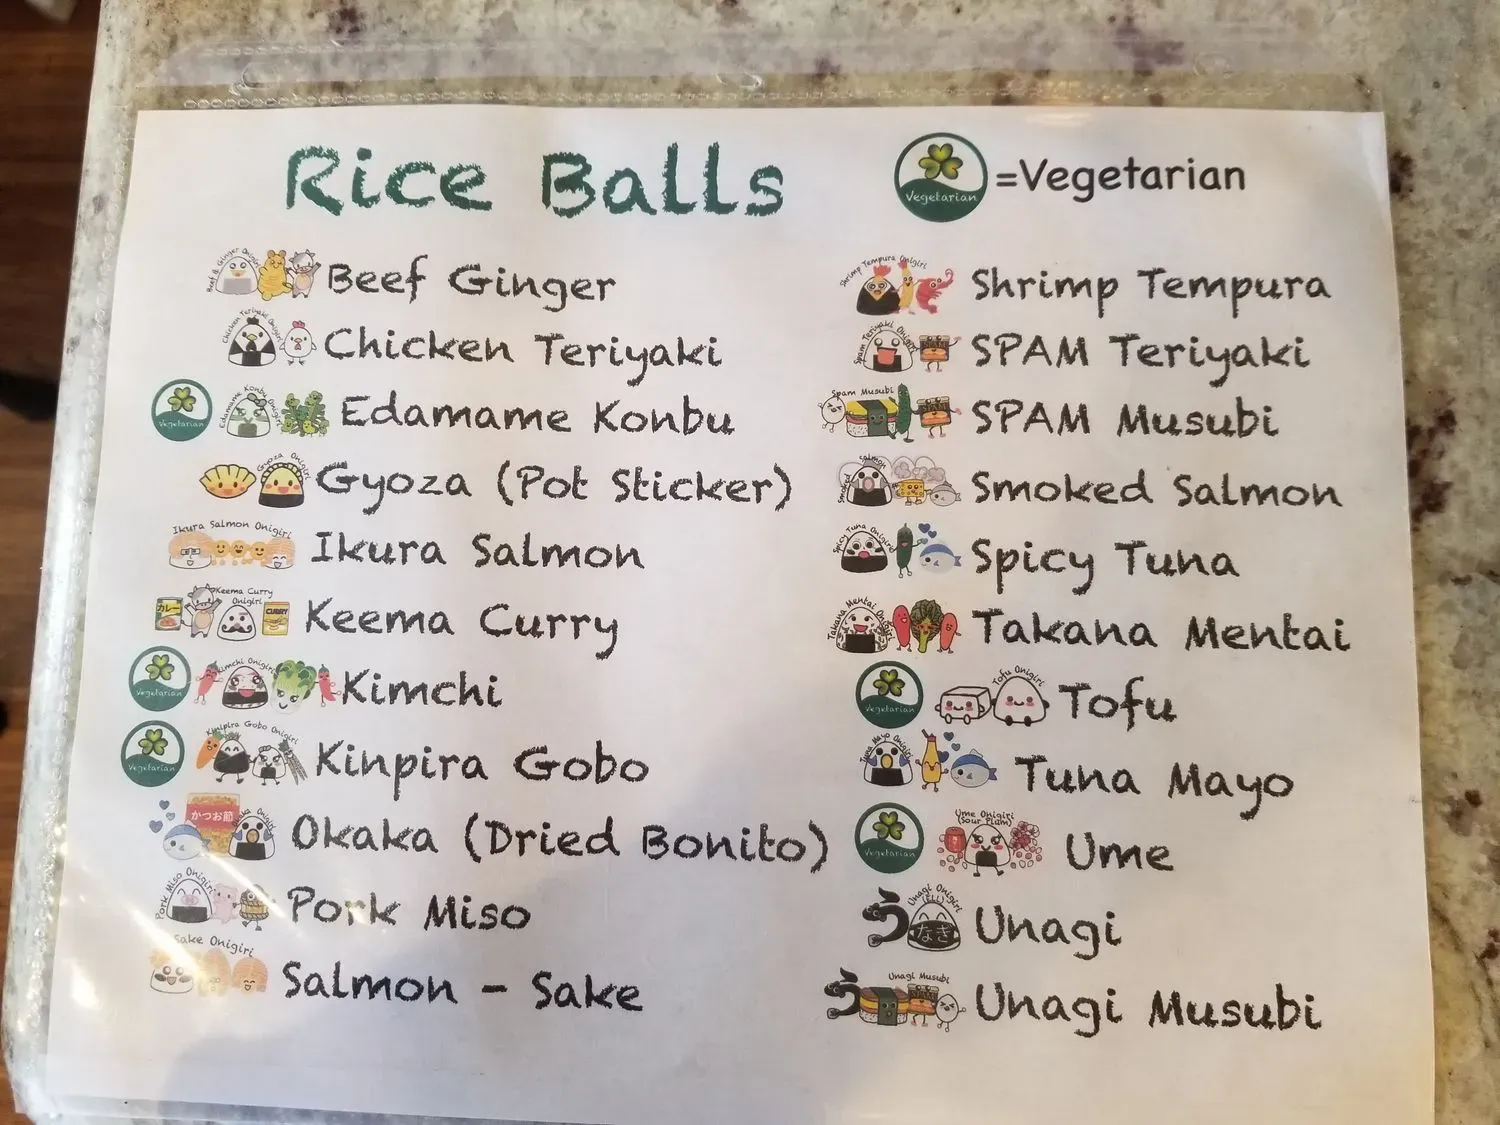 Rice Balls
Vegetarian
=Vegetarian
Beef & Ginger Onigiri
Beef Ginger
Chicken Teriyaki Onigiri
Chicken Teriyaki
Vegetarian
Edamame Konbu Onigiri
Edamame Konbu
Gyoza Onigiri
Gyoza (Pot Sticker)
Ikura Salmon Onigiri
Ikura Salmon
カレー
Keema Curry
Onigiri
CURRY
Keema Curry
Vegetarian
Kimchi Onigiri
Kimchi
Vegetarian
Kinpira Gobo Onigiri
Kinpira Gobo
かつお節
Onigiri
Okaka (Dried Bonito)
Pork Miso Onigiri
Pork Miso
Sake Onigiri
Salmon - Sake
Shrimp Tempura Onigiri
Shrimp Tempura
Spam Teriyaki Onigiri
SPAM Teriyaki
Spam Musubi
SPAM Musubi
Smoked Salmon
Smoked Salmon
Spicy Tuna Onigiri
Spicy Tuna
Takana Mentai Onigiri
Takana Mentai
Vegetarian
Tofu Onigiri
Tofu
Tuna Mayo Onigiri
Tuna Mayo
Vegetarian
Ume Onigiri
(Sour Plum)
Ume
Unagi Onigiri
う
なぎ
Unagi
Unagi Musubi
う
Unagi Musubi